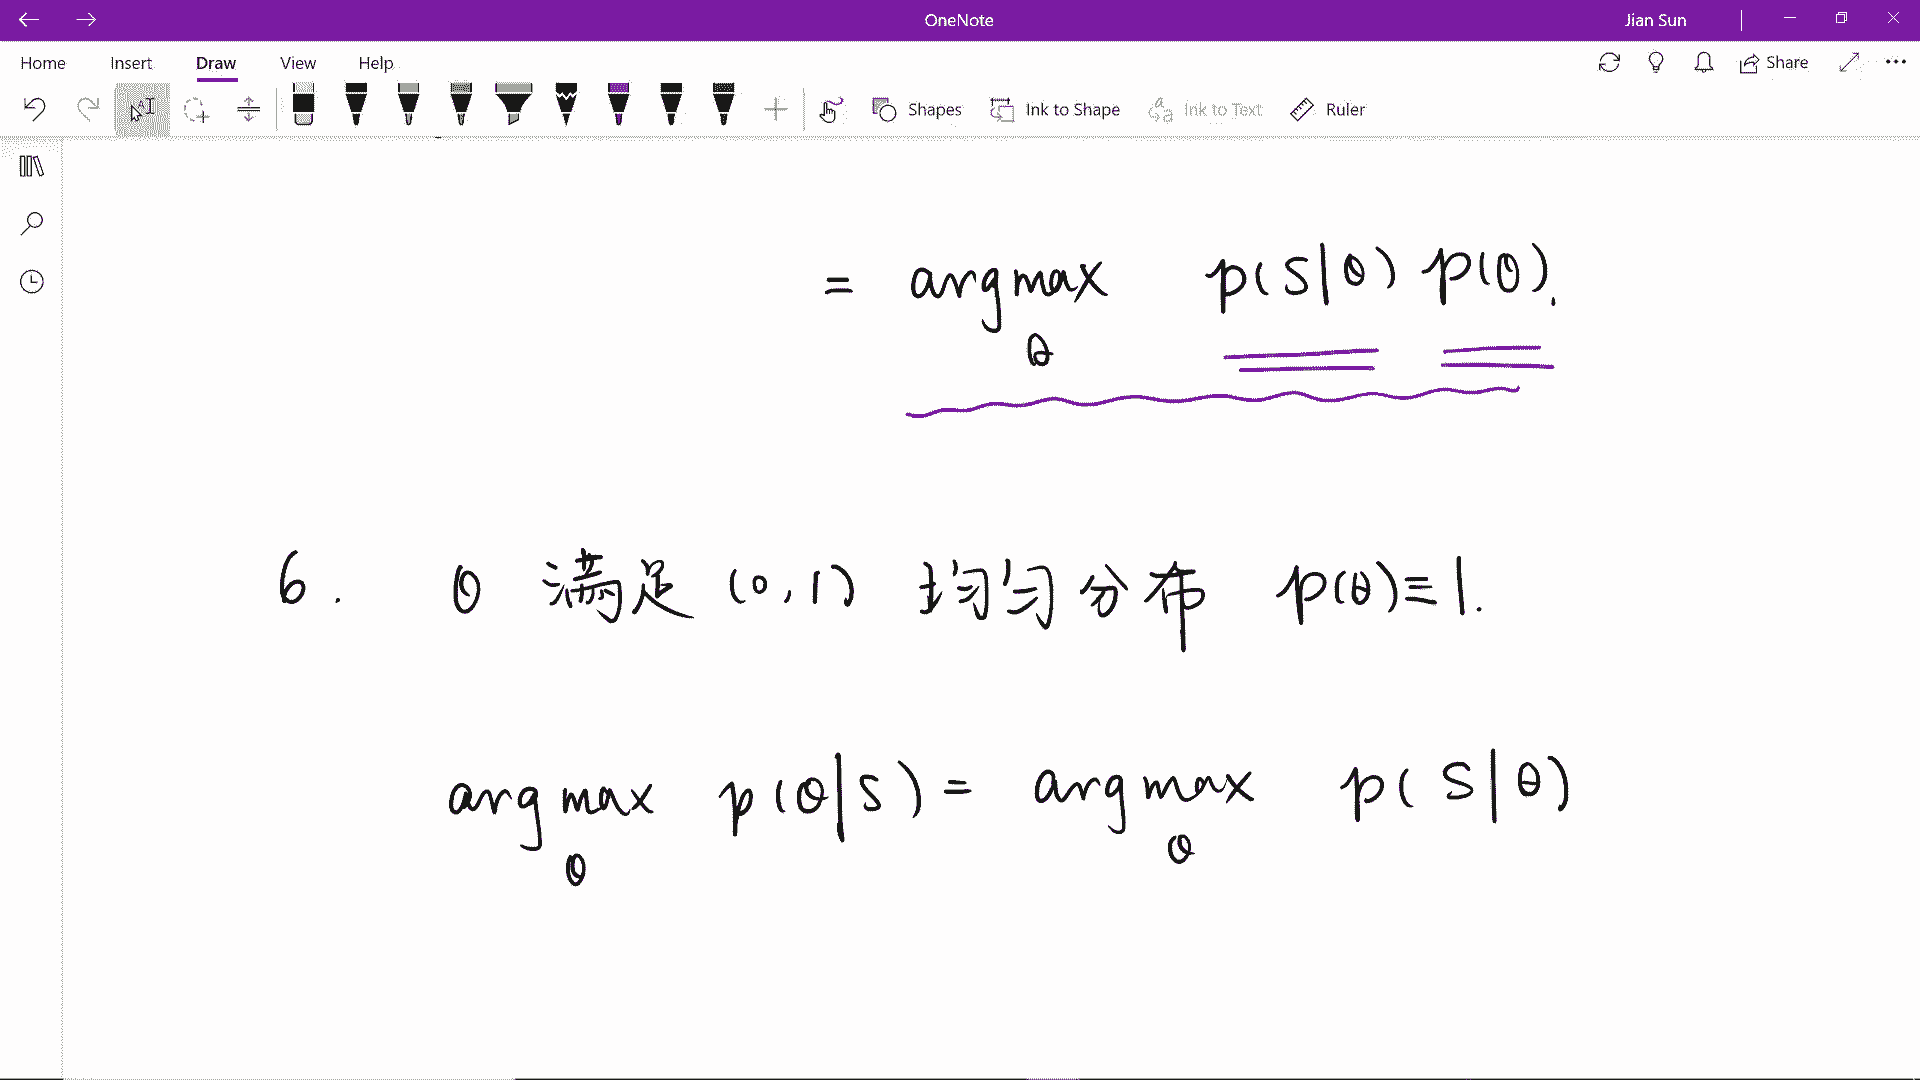 OneNote
Jian Sun
Home Insert Draw View Help
Share
Shapes Ink to Shape Ink to Text Ruler
= arg max p(S|θ) p(θ).
θ
6. θ 满足 (0,1) 均匀分布 p(θ)≡1.
arg max p(θ|S) = arg max p(S|θ)
θ θ